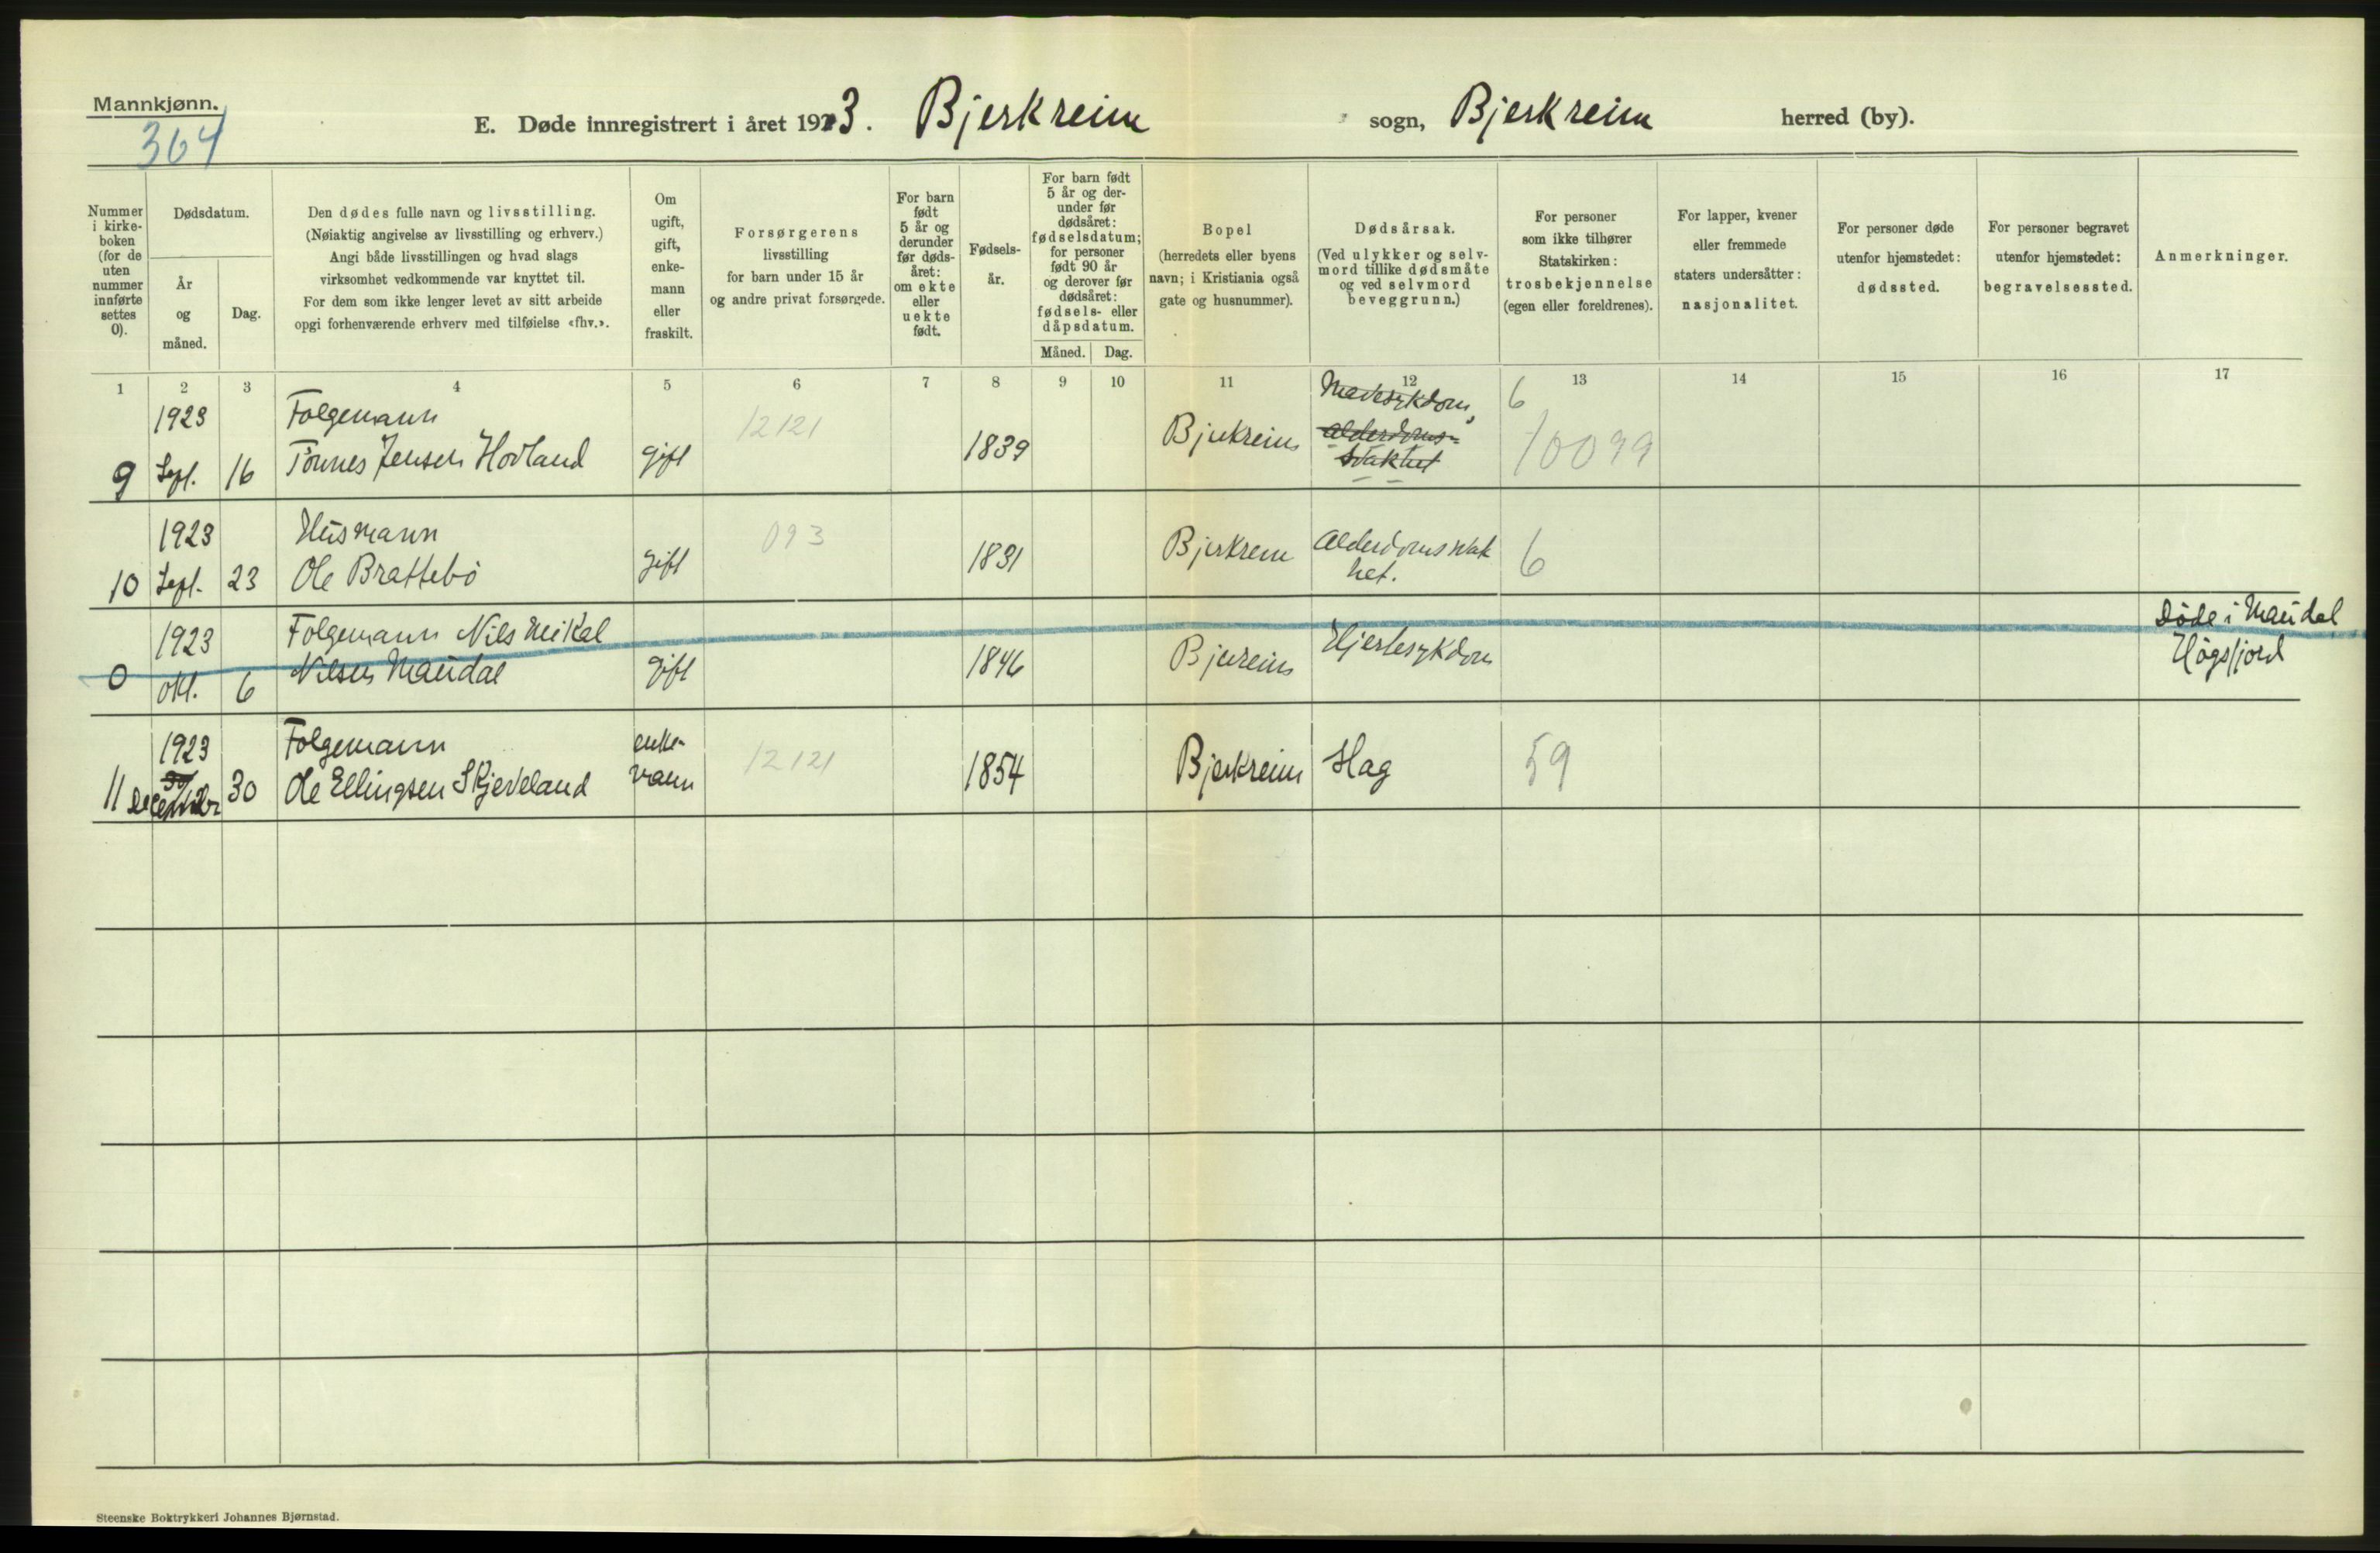 Mannkjønn.
364
E. Døde innregistrert i året 1923. Bjerkreim sogn, Bjerkreim herred (by).
Nummer i kirke- boken (for de uten nummer innførte settes 0).
Dødsdatum.
År og måned.
Dag.
Den dødes fulle navn og livsstilling.
(Nøiaktig angivelse av livsstilling og erhverv.)
Angi både livsstillingen og hvad slags
virksomhet vedkommende var knyttet til.
For dem som ikke lenger levet av sitt arbeide
opgi forhenværende erhverv med tilføielse «fhv.».
Om ugift, gift, enke- mann eller fraskilt.
Forsørgerens
livsstilling
for barn under 15 år
og andre privat forsørgede.
For barn født 5 år og derunder før døds- året: om ekte eller uekte født.
Fødsels- år.
For barn født 5 år og der- under før dødsåret: fødselsdatum; for personer født 90 år og derover før dødsåret: fødsels- eller dåpsdatum.
Måned. Dag.
Bopel
(herredets eller byens
navn; i Kristiania også
gate og husnummer).
Dødsårsak.
(Ved ulykker og selv-
mord tillike dødsmåte
og ved selvmord
beveggrunn.)
For personer
som ikke tilhører
Statskirken:
trosbekjennelse
(egen eller foreldrenes).
For lapper, kvener
eller fremmede
staters undersåtter:
nasjonalitet.
For personer døde
utenfor hjemstedet:
dødssted.
For personer begravet
utenfor hjemstedet:
begravelsessted.
Anmerkninger.
1 2 3 4 5 6 7 8 9 10 11 12 13 14 15 16 17
1923 Folgemann 12121 Mavesykdom, 6
9 Sept. 16 Tönnes Jensen Hovland gift 1839 Bjerkreim alderdoms- 10099
svakhet
1923 Husmann 093
10 Sept. 23 Ole Brattebö gift 1831 Bjerkreim Alderdomsvak
het. 6
1923 Folgemann Nils Mikal Döde i Maudal
0 okt. 6 Nilsen Maudal gift 1846 Bjerkreim Hjertesykdom Högsfjord
1923 Folgemann enke- 12121
30/12
11 December 30 Ole Ellingsen Skjeveland mann 1854 Bjerkreim Slag 59
Steenske Boktrykkeri Johannes Bjørnstad.